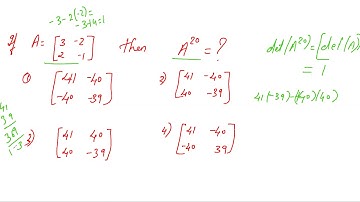 -3-2(-2)=
-3+4=1
If A = [3 -2
2 -1] then A^20 = ?
det(A^20) = [det(A)]
= 1
1) [41 -40
-40 -39]
2) [41 -40
40 -39]
41(-39)-(-40)(40)
41
39
369
1-3
3) [41 40
40 -39]
4) [41 -40
-40 39]